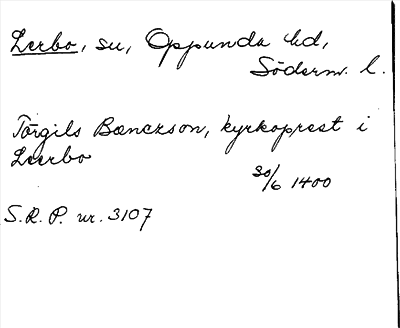 Lerbo, su, Oppunda hd,
Söderm. l.
Törgils Bænckson, kyrkoprest i
Leerbo
30/6 1400
S.R.P. nr. 3107